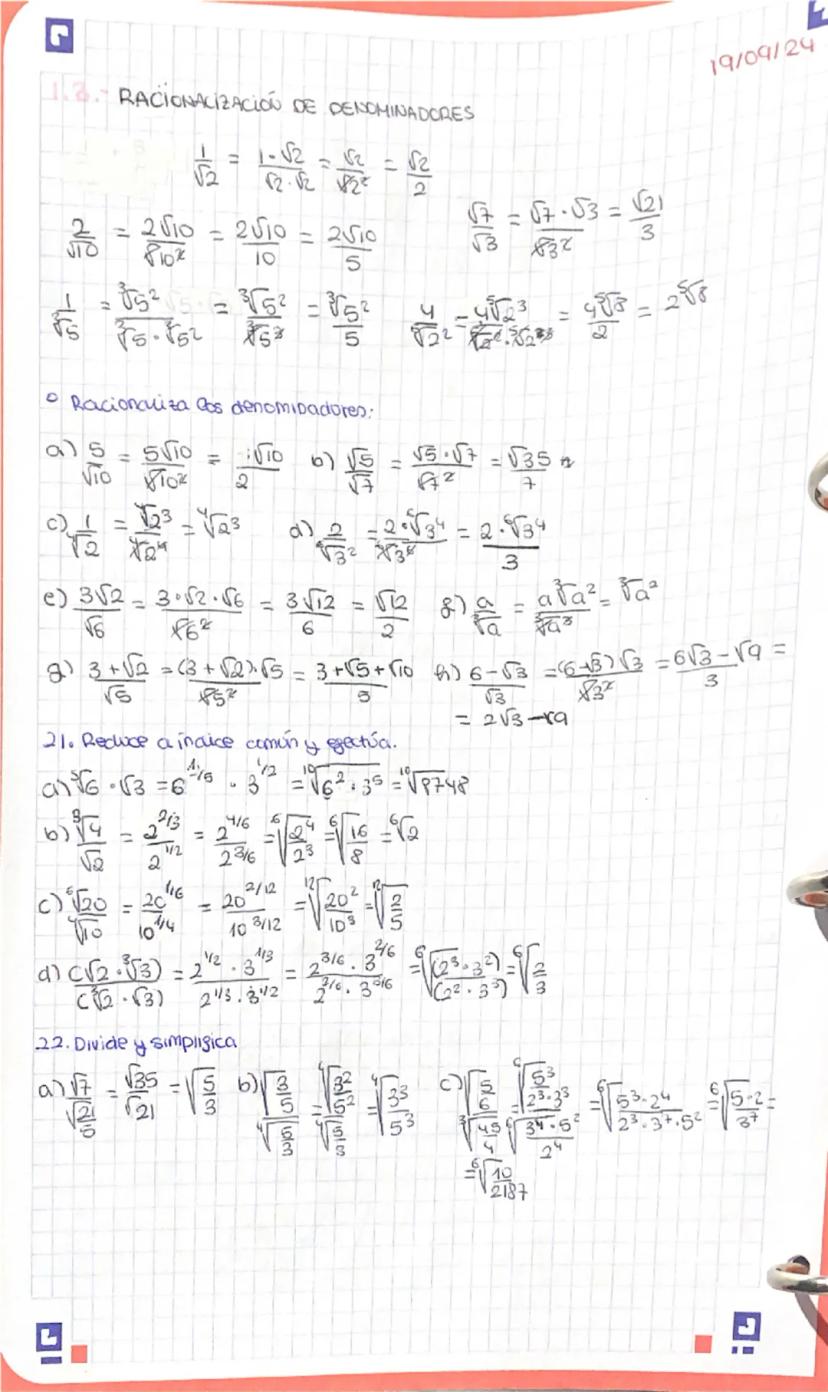 19/09/24
1.3.- RACIONALIZACIÓN DE DENOMINADORES
1/√2 = 1·√2/√2·√2 = √2/√2² = √2/2
2/√10 = 2√10/√10² = 2√10/10 = 2√10/5
√7/√3 = √7·√3/√3² = √21/3
1/∛5 = ∛5²/∛5·∛5² = ∛5²/∛5³ = ∛5²/5
4/⁵√2² = 4⁵√2³/⁵√2²·⁵√2³ = 4⁵√8/2 = 2⁵√8
o Racionaliza los denominadores:
a) 5/√10 = 5√10/√10² = √10/2 b) √5/√7 = √5·√7/√7² = √35/7
c) 1/⁴√2 = ⁴√2³/⁴√2⁴ = ⁴√2³ d) 2/⁶√3² = 2·⁶√3⁴/⁶√3⁶ = 2·⁶√3⁴/3
e) 3√2/√6 = 3·√2·√6/√6² = 3√12/6 = √12/2 f) a/∛a = a∛a²/∛a³ = ∛a²
g) 3+√2/√5 = (3+√2)·√5/√5² = 3+√5+√10/5 h) 6-√3/√3 = (6-√3)√3/√3² = 6√3-√9/3 =
= 2√3-√9
21. Reduce a índice común y efectúa.
a) ⁵√6·√3 = 6^1/5 · 3^1/2 = ¹⁰√6²·3⁵ = ¹⁰√8748
b) ∛4/√2 = 2^2/3/2^1/2 = 2^4/6/2^3/6 = ⁶√2⁴/2³ = ⁶√16/8 = ⁶√2
c) ⁶√20/⁴√10 = 20^1/6/10^1/4 = 20^2/12/10^3/12 = ¹²√20²/10³ = ¹²√2/5
d) (√2·∛3)/(∛2·√3) = 2^1/2·3^1/3/2^1/3·3^1/2 = 2^3/6·3^2/6/2^2/6·3^3/6 = ⁶√(2³·3²)/(2²·3³) = ⁶√2/3
22. Divide y simplifica
a) √7/√21/5 = √35/√21 = √5/3 b) √3/5/⁴√5/3 = ⁴√3²/5²/⁴√5/3 = ⁴√3³/5³ c) √5/6/∛45/4 = ⁶√5³/2³·3³/⁶√3⁴·5²/2⁴ = ⁶√5³·2⁴/2³·3⁷·5² = ⁶√5·2/3⁷ =
= ⁶√10/2187